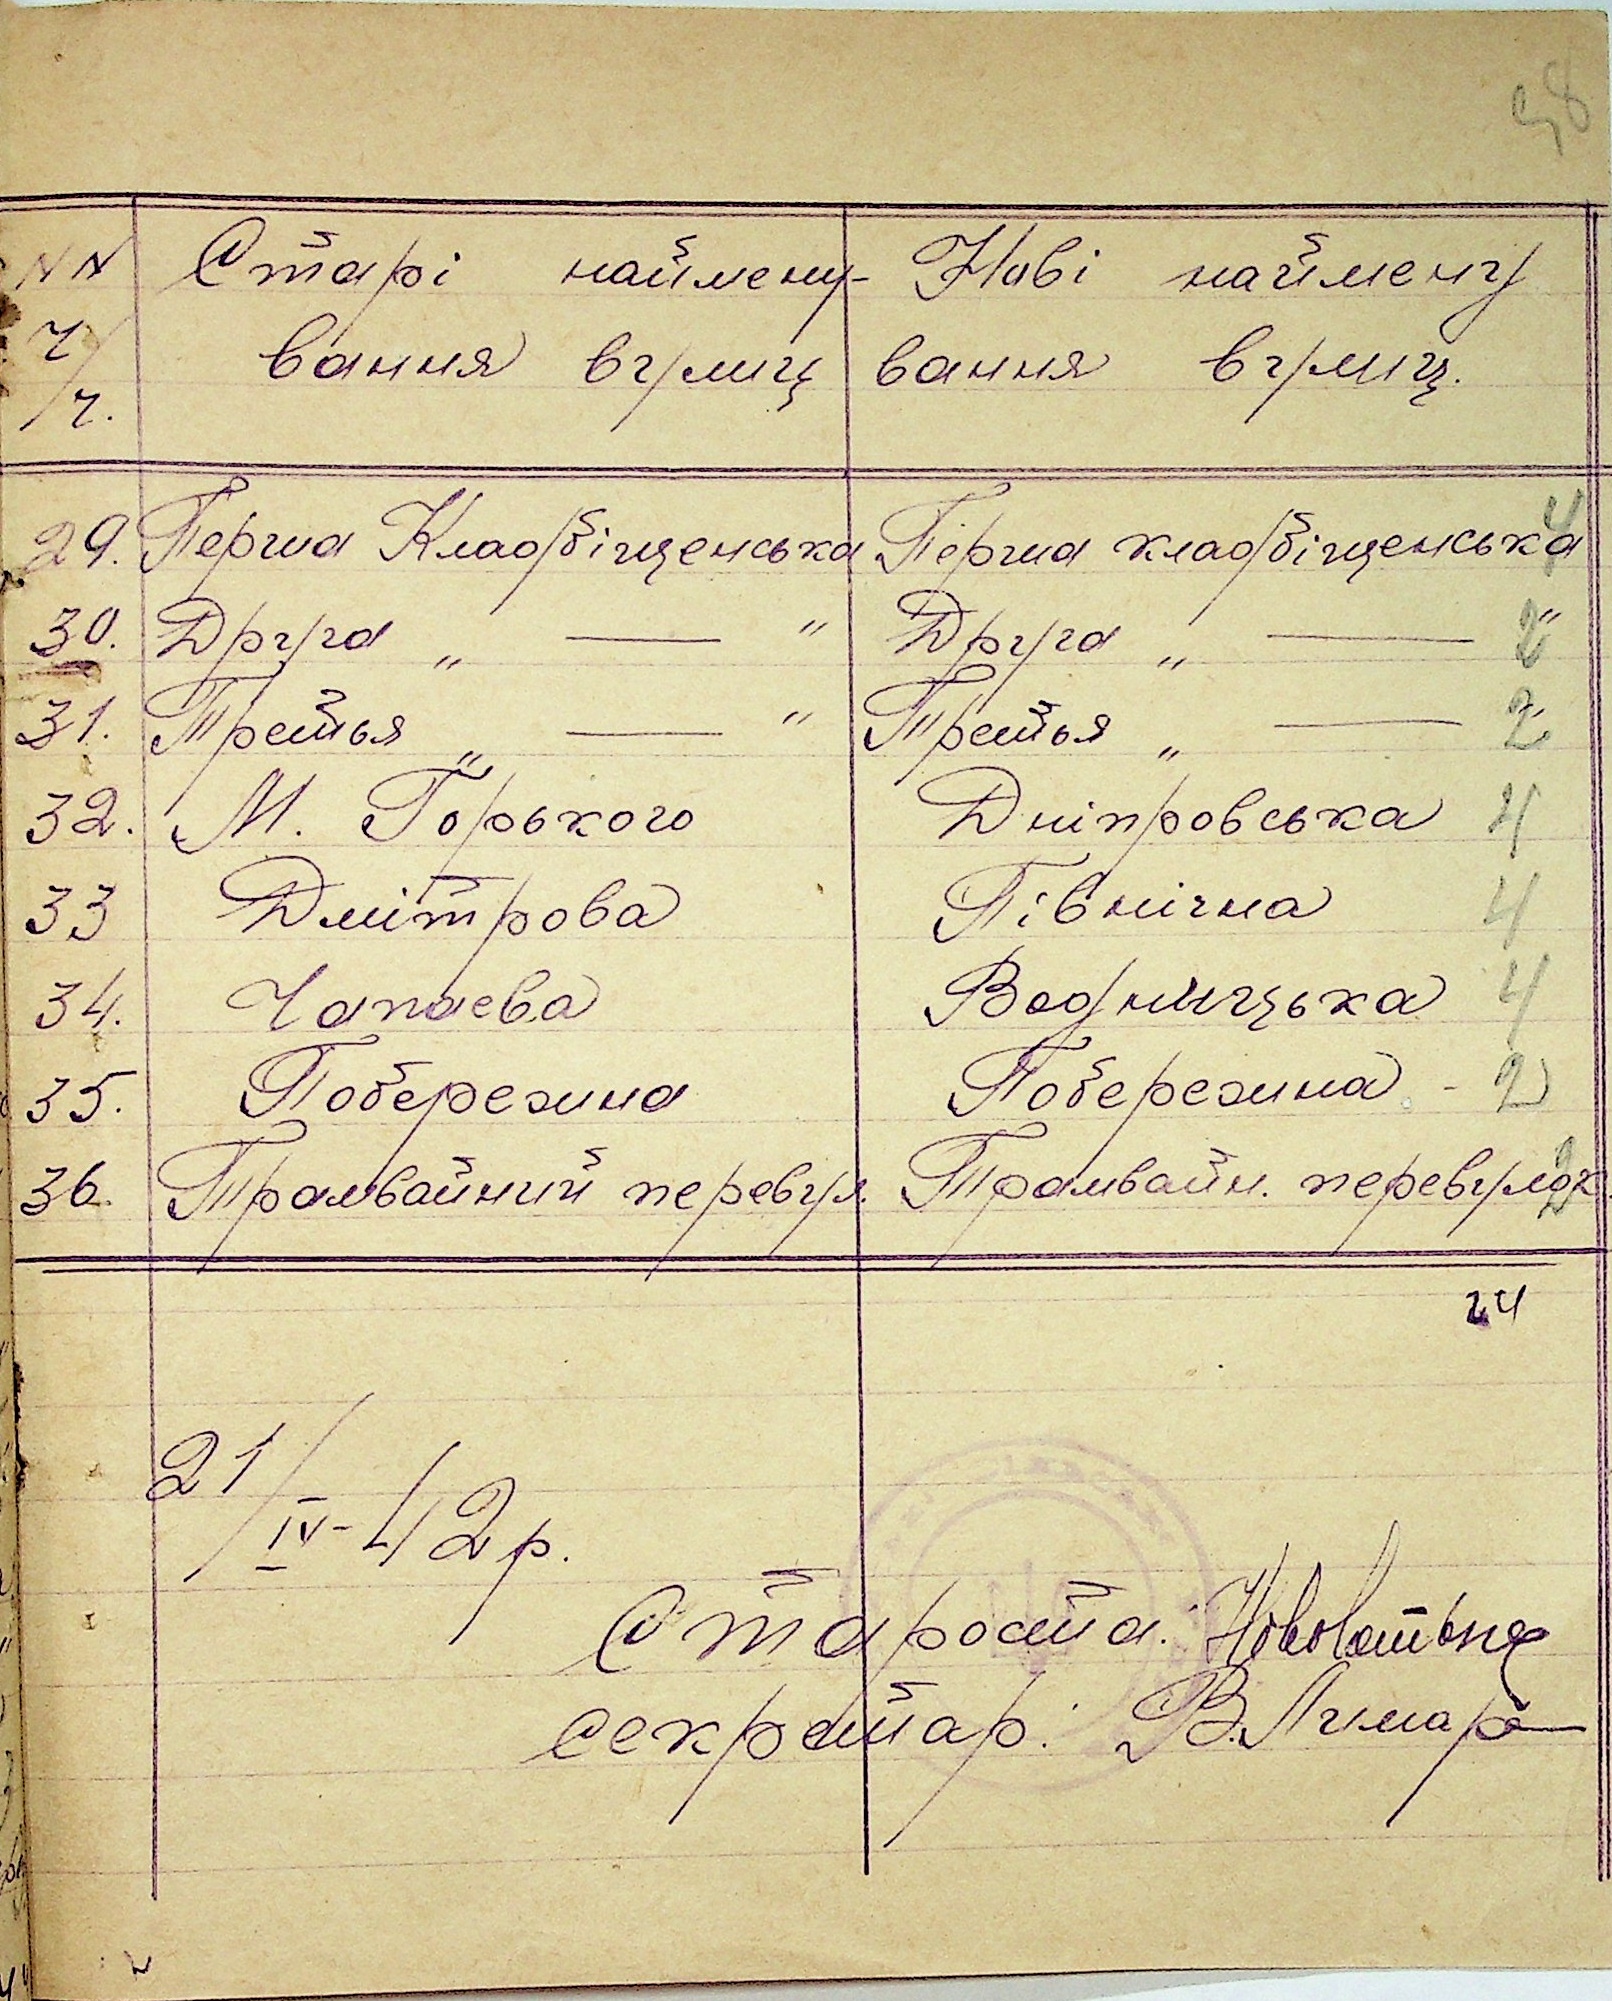 38
NN Старі наймену- Нові наймену
ч/ч. вання вулиц вання вулиц.
29. Перша Кладбіщенська Перша кладбіщенська 4
30. Друга „ — " Друга „ — " 2
31. Третья „ — " Третья „ — " 2
32. М. Горького Дніпровська 4
33 Дмітрова Північна 4
34. Чапаєва Водницька 4
35. Побережна Побережна - 2
36. Трамвайний перевул. Трамвайн. перевулок. 2
24
21/IV-42 р.
Староста:
секретар: В. Лимар